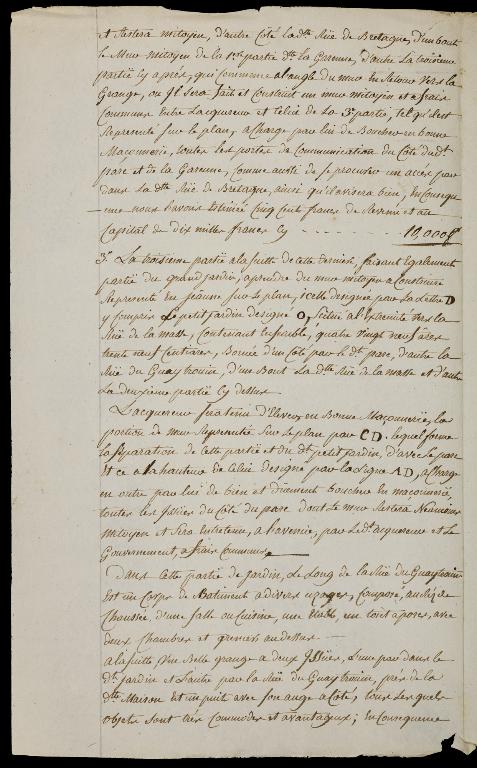 et restera mitoyen, d'autre Coté la dte Rüe de Bretagne, d'un bout
le Mur mitoyen de la 1ere partie dte la Garenne, d'autre La troisieme
partie Cy après, qui commence a l'angle du mur En Retour vers la
Grange, ou Il sera fait et Construit un mur mitoyen et a frais
Communs Entre L'acquereur et Celui de La 3e partie, tel qu'il est
Représenté sur le plan, a Charge par lui de Boucher en bonne
Maçonnerie, toutes les portes de Communication du Coté dudt
parc et de la Garenne, Comme aussi de se procurer un accès par
dans La dte Rüe de Bretagne, ainsi qu'il avisera bien, En Conséque
nce nous l'avons Estimée Cinq Cent francs de Revenu et au
Capital de dix mille francs Cy - - - - - - - 10,000f
3º La troisieme partie a la suitte de Cette derniere, faisant Egalement
partie du grand jardin, a prendre du mur mitoyen a Construire
Représenté En jeaune sur Le plan, icelle designée par La Lettre D
y Compris Le petit jardin designé O, scitué a l'Extremité vers la
Rüe de la masse, Contenant Ensemble, quatre vingt neuf ares
trente neuf Centiares, Bornée d'un Coté par le dt parc, d'autre la
Rüe du Guaytrouin, d'un Bout La dte Rüe de la masse et d'autre
La deuxieme partie Cy dessus
L'acquereur sera tenu d'Elever, en Bonne Maçonnerie, la
portion de mur Représentée sur Le plan par C D. lequel forme
la Separation de Cette partie et du dt petit jardin, d'avec Le parc
et ce a la hauteur de Celui designé par la Ligne A D, a Charge
en outre par lui de bien et düement Boucher En maçonnerie,
toutes les Issües du Coté du parc dont Le mur Restera Néanmoins
mitoyen et Sera Entretenu, a l'avenir, par Le dt acquereur et Le
Gouvernement, a frais Communs
Dans Cette partie de jardin, Le Long de la Rüe du Guaytrouin
Est un Corps de Batiment a divers usages, Composé, au Rez de
Chaussée, d'une salle ou Cuisine, une Etable, en tout a pores, avec
deux Chambres et greniers au dessus
a la suitte Une Belle grange a deux Issües, L'une par dans le
dt jardin et L'autre par la Rüe du Guaytrouin, près de la
dte Maison Est un puit avec son auge a Coté, tous Les quels
objets sont très Commodes et avantageux; En Conséquence